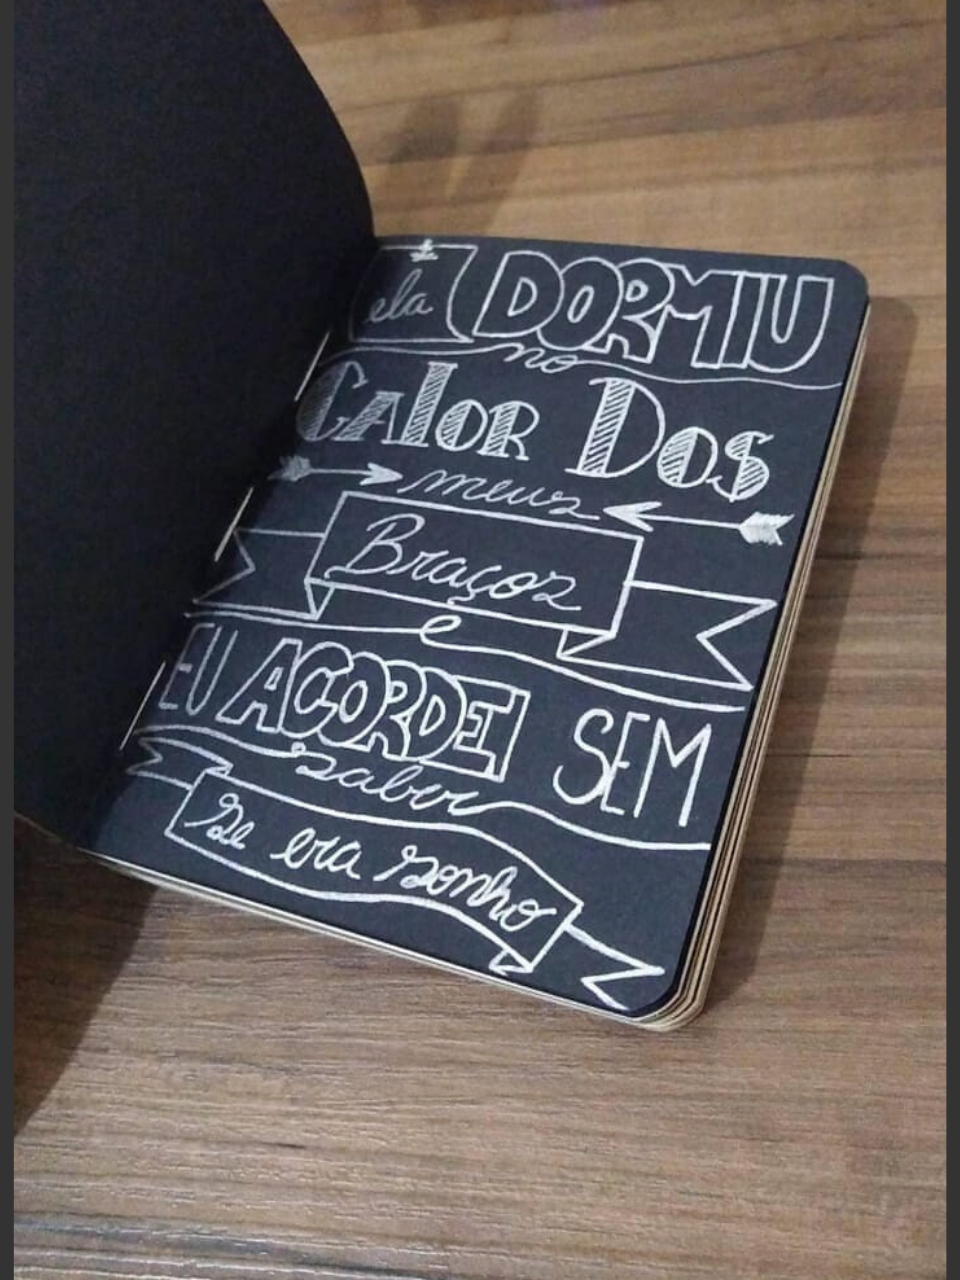 ela DORMIU
no
Calor Dos
meus
Braços
e
EU ACORDEI SEM
saber
se era sonho